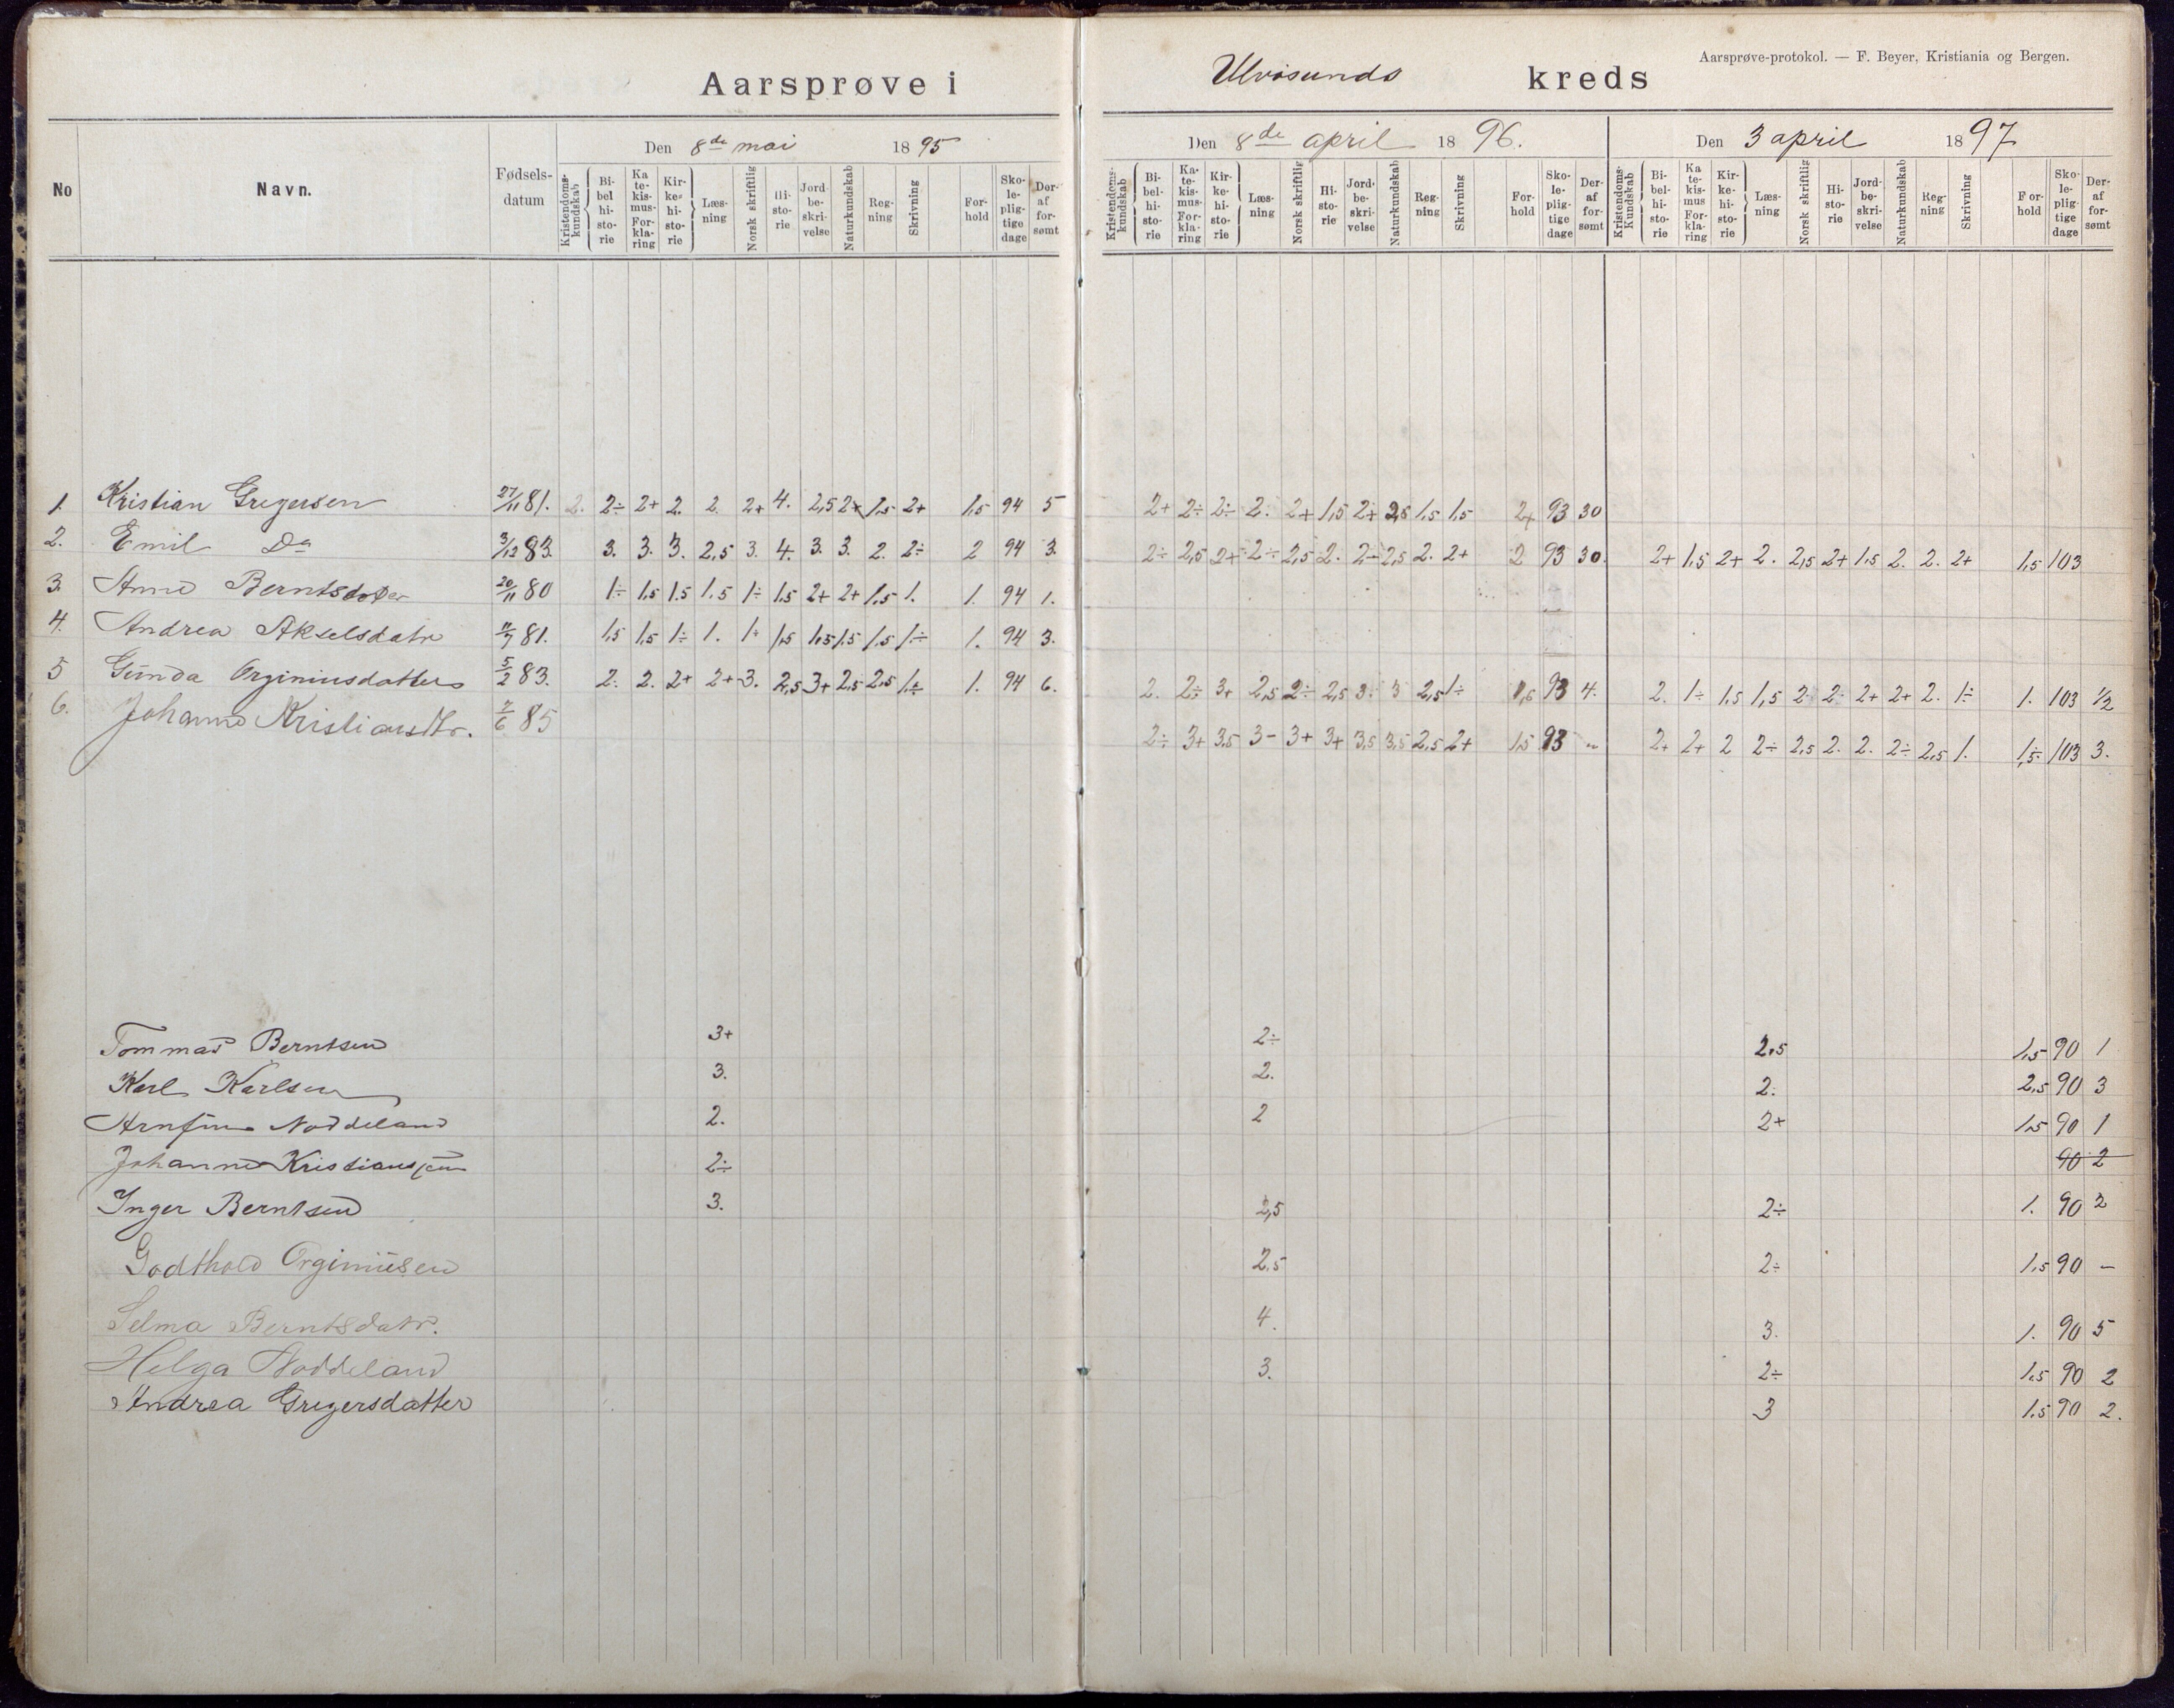 Aarsprøve-protokol. — F. Beyer, Kristiania og Bergen.
Aarsprøve i Ulvøsunds kreds
No Navn. Fødsels-datum
Den 8de mai 1895
Kristendoms-kundskab Bi-bel hi-sto-rie Ka te-kis-mus-For-kla-ring Kir-ke-hi-sto-rie Læs-ning Norsk skriftlig Hi-sto-rie Jord-be-skri-velse Naturkundskab Reg-ning Skrivning For-hold Sko-le-plig-tige dage Der-af for-sømt
Den 8de april 1896.
Kristendoms-kundskab Bi-bel-hi-sto-rie Ka-te-kis-mus-For-kla-ring Kir-ke-hi-sto-rie Læs-ning Norsk skriftlig Hi-sto-rie Jord-be-skri-velse Naturkundskab Reg-ning Skrivning For-hold Sko-le-plig-tige dage Der-af for-sømt
Den 3 april 1897
Kristendoms-Kundskab Bi-bel-hi-sto-rie Ka te-kis-mus For-kla-ring Kir-ke-hi-sto-rie Læs-ning Norsk skriftlig Hi-sto-rie Jord-be-skri-velse Naturkundskab Reg-ning Skrivning For-hold Sko-le-plig-tige dage Der-af for-sømt
1. Kristian Gregersen 27/11 81. 2. 2÷ 2+ 2. 2. 2+ 4. 2,5 2+ 1,5 2+ 1,5 94 5 2+ 2÷ 2÷ 2. 2+ 1,5 2+ 2,5 1,5 1,5 2+ 93 30
2. Emil Do 3/12 83. 3. 3. 3. 2,5 3. 4. 3. 3. 2. 2÷ 2 94 3. 2÷ 2,5 2+ 2÷ 2,5 2. 2÷ 2,5 2. 2+ 2 93 30. 2+ 1,5 2+ 2. 2,5 2+ 1,5 2. 2. 2+ 1,5 103
3. Anne Berntsdoter 20/11 80 1÷ 1,5 1.5 1.5 1÷ 1,5 2+ 2+ 1,5 1. 1. 94 1.
4. Andrea Akselsdatr 11/7 81. 1,5 1,5 1÷ 1. 1÷ 1,5 1,5 1,5 1,5 1÷ 1. 94 3.
5 Gunda Orginiusdatter 5/2 83. 2. 2. 2+ 2+ 3. 2,5 3+ 2,5 2,5 1÷ 1. 94 6. 2. 2÷ 3+ 2,5 2÷ 2,5 3. 3 2,5 1÷ 1,5 93 4. 2. 1÷ 1,5 1,5 2 2 2+ 2+ 2. 1÷ 1. 103 1/2
6. Johanne Kristiansdtr. 7/6 85 2÷ 3+ 3,5 3- 3+ 3+ 3,5 3,5 2,5 2+ 1,5 93 " 2+ 2+ 2 2÷ 2,5 2. 2. 2÷ 2,5 1. 1,5 103 3.
Tommas Berntsen 3+ 2÷ 2,5 1,5 90 1
Karl Karlsen 3. 2. 2. 2,5 90 3
Arnfin Noddeland 2. 2 2+ 1,5 90 1
Johanne Kristiansen 2÷ 90 2
Inger Berntsen 3. 2,5 2÷ 1. 90 2
Godthold Orginiusen 2,5 2÷ 1,5 90 -
Selma Berntsdatr. 4. 3. 1. 90 5
Helga Noddeland 3. 2÷ 1,5 90 2
Andrea Gregersdatter 3 1.5 90 2.